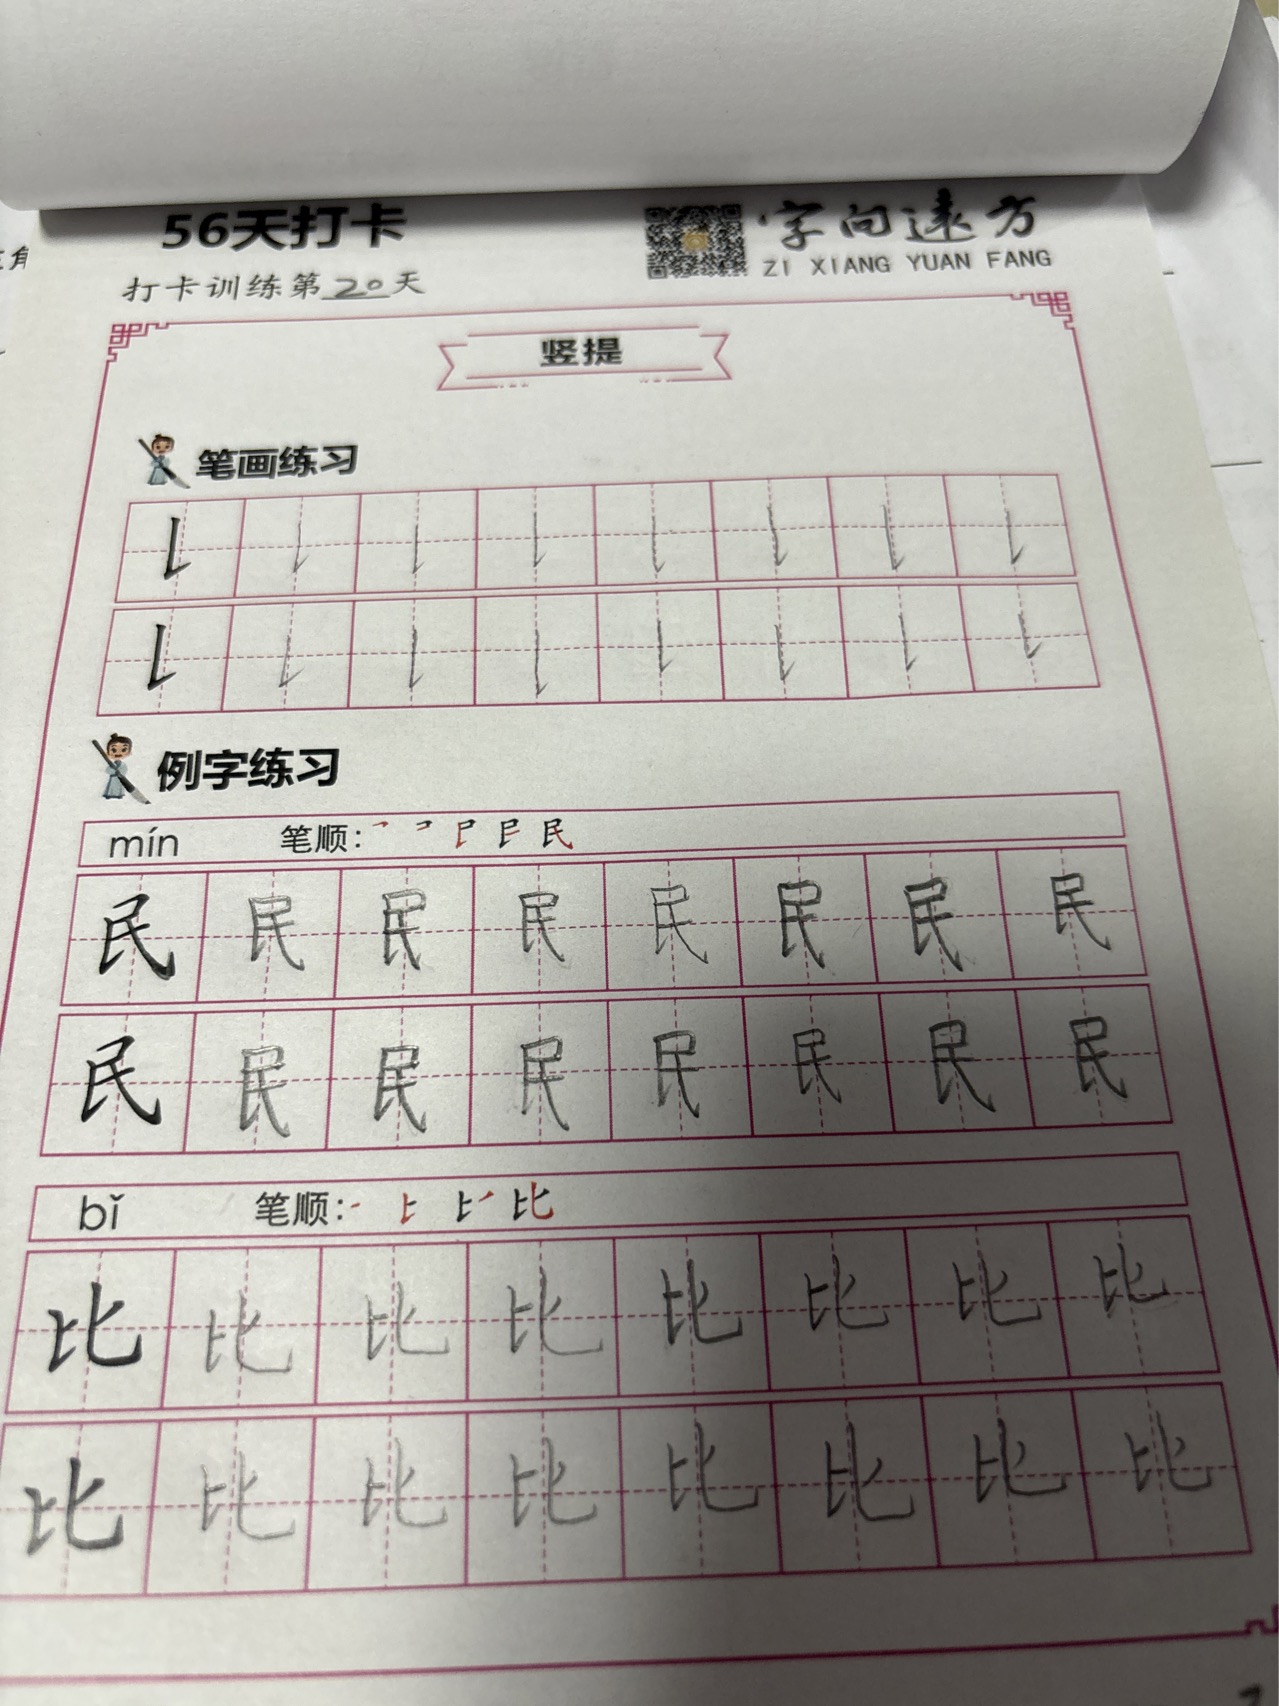 56天打卡
字向远方
ZI XIANG YUAN FANG
打卡训练第20天
竖提
笔画练习
㇙ ㇙ ㇙ ㇙ ㇙ ㇙ ㇙ ㇙
㇙ ㇙ ㇙ ㇙ ㇙ ㇙ ㇙ ㇙
例字练习
mín 笔顺: 民
民 民 民 民 民 民 民 民
民 民 民 民 民 民 民 民
bǐ 笔顺: 比
比 比 比 比 比 比 比 比
比 比 比 比 比 比 比 比